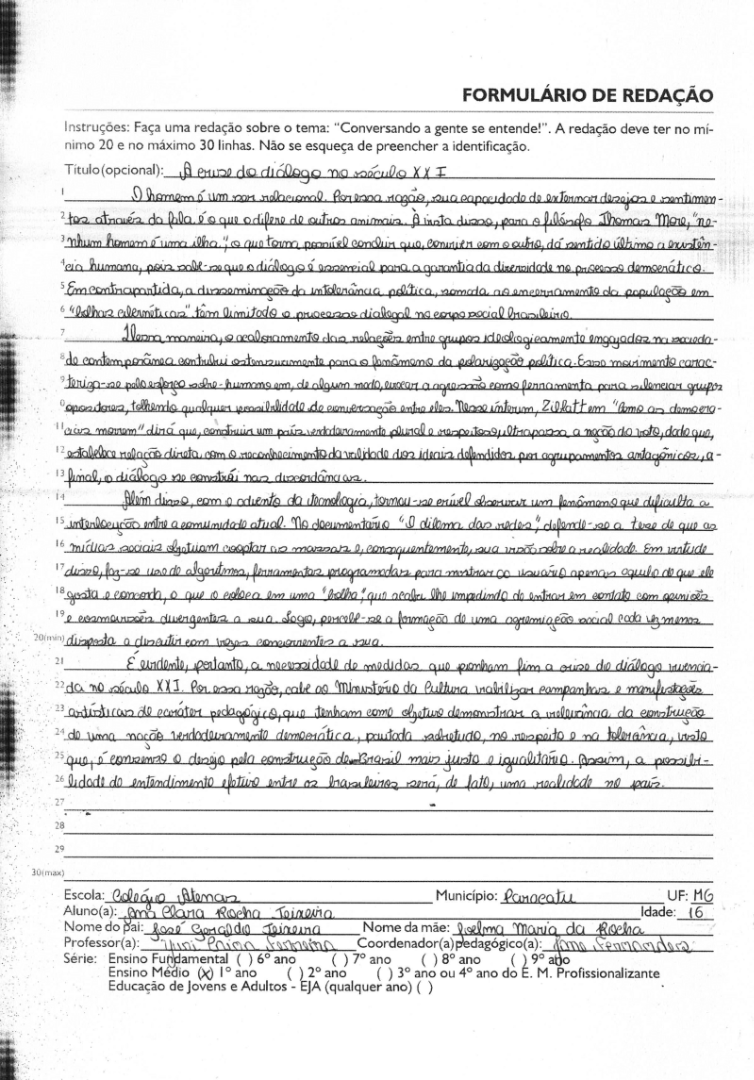 FORMULÁRIO DE REDAÇÃO
Instruções: Faça uma redação sobre o tema: "Conversando a gente se entende!". A redação deve ter no mí-
nimo 20 e no máximo 30 linhas. Não se esqueça de preencher a identificação.
Título (opcional): A crise do diálogo no século XXI
1 O homem é um ser relacional. Por essa razão, sua capacidade de externar desejos e sentimen-
2 tos através da fala é o que o difere de outros animais. À vista disso, para o filósofo Thomas More, "ne-
3 nhum homem é uma ilha", o que torna possível concluir que, conviver com o outro, dá sentido último a existên-
4 cia humana, pois sabe-se que o diálogo é essencial para a garantia da diversidade no processo democrático.
5 Em contrapartida, a disseminação da intolerância política, somada ao encerramento da população em
6 "bolhas cibernéticas" têm limitado o processo dialogal no corpo social brasileiro.
7 Dessa maneira, o acaloramento das relações entre grupos ideologicamente engajados na socieda-
8 de contemporânea contribui ostensivamente para o fenômeno da polarização política. Esse movimento carac-
9 teriza-se pelo esforço sobre-humano em, de algum modo, evocar a agressão como ferramenta para silenciar grupos
0 opositores, tolhendo qualquer possibilidade de conversação entre eles. Nesse ínterim, Ziblatt em "Como as democra-
11 cias morrem" dirá que, construir um país verdadeiramente plural e respeitoso, ultrapassa a noção do voto, dado que,
12 estabelece relação direta com o reconhecimento da validade dos ideais defendidos por agrupamentos antagônicos, a-
13 final, o diálogo se constrói nas discordâncias.
14 Além disso, com o advento da tecnologia, tornou-se crível observar um fenômeno que dificulta a
15 interlocução entre a comunidade atual. No documentário "O dilema das redes", defende-se a tese de que as
16 mídias sociais objetivam cooptar as massas e, consequentemente, sua visão sobre a realidade. Em virtude
17 disso, faz-se uso de algoritmos, ferramentas programadas para mostrar ao usuário apenas aquilo de que ele
18 gosta e concorda, o que o coloca em uma "bolha", que acaba lhe impedindo de entrar em contato com opiniões
19 e cosmovisões divergentes a sua. Logo, percebe-se a formação de uma agremiação social cada vez menos
20(min) disposta a discutir com vozes concorrentes a sua.
21 É evidente, portanto, a necessidade de medidas que ponham fim a crise do diálogo vivencia-
22 da no século XXI. Por essa razão, cabe ao Ministério da Cultura viabilizar campanhas e manifestações
23 artísticas de caráter pedagógico, que tenham como objetivo demonstrar a relevância da construção
24 de uma nação verdadeiramente democrática, pautada sobretudo, no respeito e na tolerância, visto
25 que, é consenso o desejo pela construção de Brasil mais justo e igualitário. Assim, a possibi-
26 lidade do entendimento efetivo entre os brasileiros será, de fato, uma realidade no país.
27
28
29
30(max)
Escola: Colégio Atenas Município: Paracatu UF: MG
Aluno(a): Ana Clara Rocha Teixeira Idade: 16
Nome do pai: José Geraldo Teixeira Nome da mãe: Joelma Maria da Rocha
Professor(a): Yuri Paiva Ferreira Coordenador(a) pedagógico(a): Jane Fernandes
Série: Ensino Fundamental ( ) 6º ano ( ) 7º ano ( ) 8º ano ( ) 9º ano
Ensino Médio (x) 1º ano ( ) 2º ano ( ) 3º ano ou 4º ano do E. M. Profissionalizante
Educação de Jovens e Adultos - EJA (qualquer ano) ( )